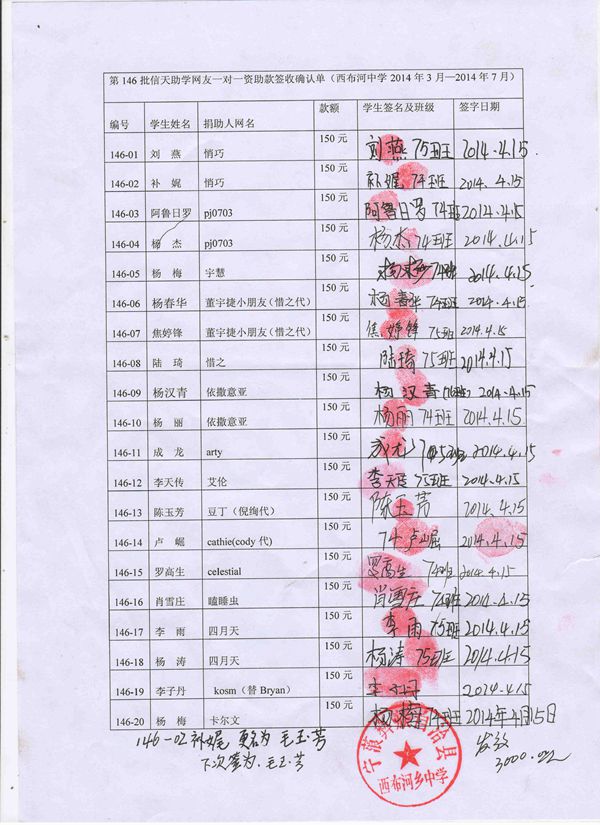 第 146 批信天助学网友一对一资助款签收确认单（西布河中学 2014 年 3 月—2014 年 7 月）
编号 学生姓名 捐助人网名 款额 学生签名及班级 签字日期
146-01 刘 燕 悄巧 150 元 刘燕 75班 2014.4.15
146-02 补 娓 悄巧 150 元 补娓 74班 2014.4.15
146-03 阿鲁日罗 pj0703 150 元 阿鲁日罗 74班 2014.4.15
146-04 杨 杰 pj0703 150 元 杨杰 74班 2014.4.15
146-05 杨 梅 宇慧 150 元 杨梅 74班 2014.4.15
146-06 杨春华 董宇捷小朋友（惜之代） 150 元 杨春华 74班 2014.4.15
146-07 焦婷锋 董宇捷小朋友（惜之代） 150 元 焦婷锋 75班 2014.4.15
146-08 陆 琦 惜之 150 元 陆琦 75班 2014.4.15
146-09 杨汉青 依撒意亚 150 元 杨汉青 2014.4.15
146-10 杨 丽 依撒意亚 150 元 杨丽 74班 2014.4.15
146-11 成 龙 arty 150 元 成龙 2014.4.15
146-12 李天传 艾伦 150 元 李天传 75班 2014.4.15
146-13 陈玉芳 豆丁（倪绚代） 150 元 陈玉芳 2014.4.15
146-14 卢 崛 cathie(cody 代) 150 元 74 卢崛 2014.4.15
146-15 罗高生 celestial 150 元 罗高生 74班 2014.4.15
146-16 肖雪庄 瞌睡虫 150 元 肖雪庄 74班 2014.4.15
146-17 李 雨 四月天 150 元 李雨 75班 2014.4.15
146-18 杨 涛 四月天 150 元 杨涛 75班 2014.4.15
146-19 李子丹 kosm（替 Bryan） 150 元 李子丹 2014.4.15
146-20 杨 梅 卡尔文 150 元 杨梅 74班 2014年4月15日
146-02 补娓 更名为 毛玉芳
下次签为:毛玉芳
发放
3000.元
宁蒗彝族自治县
西布河乡中学